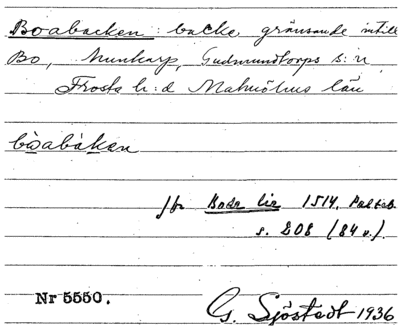 Boabacken: backe, gränsande intill
Bo, Munkarp, Gudmundtorps s:n
Frosta h:d Malmöhus län
bòabàken
jfr Boda lia 1514, Palteb.
s. 208 (84 v.).
Nr 5550.
G. Sjöstedt 1936